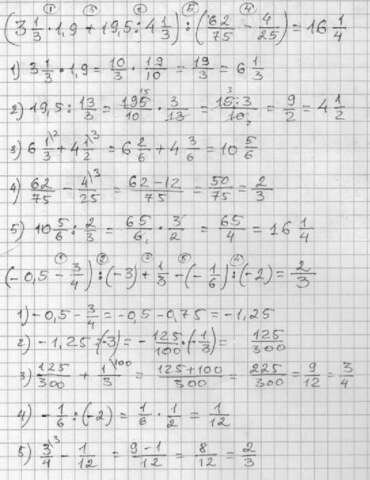 ① ③ ② ⑤ ④
(3 1/3 · 1,9 + 19,5 : 4 1/3) : (62/75 - 4/25) = 16 1/4
1) 3 1/3 · 1,9 = 10/3 · 19/10 = 19/3 = 6 1/3
2) 19,5 : 13/3 = 195/10 · 3/13 = 15·3/10 = 9/2 = 4 1/2
3) 6 1/3 + 4 1/2 = 6 2/6 + 4 3/6 = 10 5/6
4) 62/75 - 4/25 = 62-12/75 = 50/75 = 2/3
5) 10 5/6 : 2/3 = 65/6 · 3/2 = 65/4 = 16 1/4
(-0,5 - 3/4) : (-3) + 1/3 - (-1/6) : (-2) = 2/3
1) -0,5 - 3/4 = -0,5 - 0,75 = -1,25
2) -1,25 : (-3) = -125/100 · (-1/3) = 125/300
3) 125/300 + 1/3 = 125+100/300 = 225/300 = 9/12 = 3/4
4) -1/6 : (-2) = 1/6 · 1/2 = 1/12
5) 3/4 - 1/12 = 9-1/12 = 8/12 = 2/3